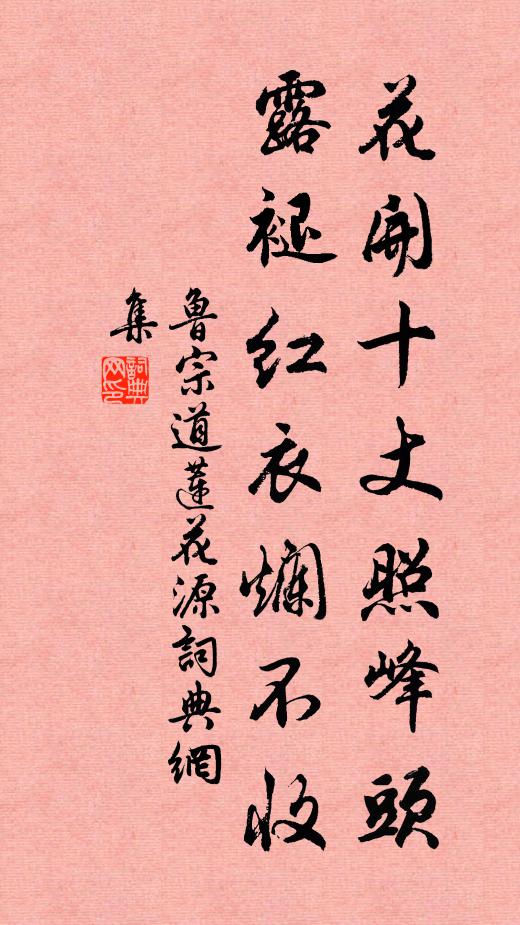 花開十丈照峰頭
露褪紅衣爛不收
魯宗道蓮花源詞典網
集
詞典
網印